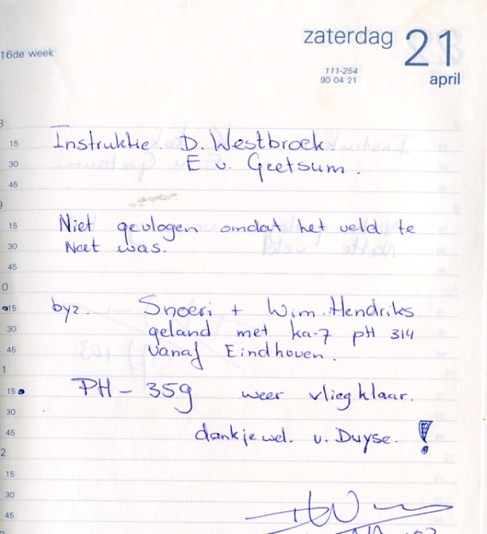 16de week
zaterdag 21
111-254
90 04 21
april
Instruktie D. Westbroek
E v. Geetsum.
Niet gevlogen omdat het veld te
Nat was.
byz. Snoeri + Wim Hendriks
geland met ka-7 pH 314
vanaf Eindhoven.
PH - 359 weer vliegklaar.
dankjewel. v. Duyse. !